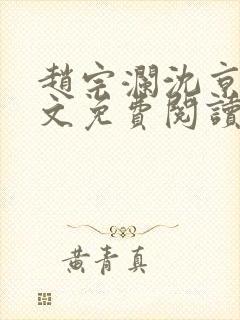 趙宗瀾沈京
文免費閱讀
黃青真